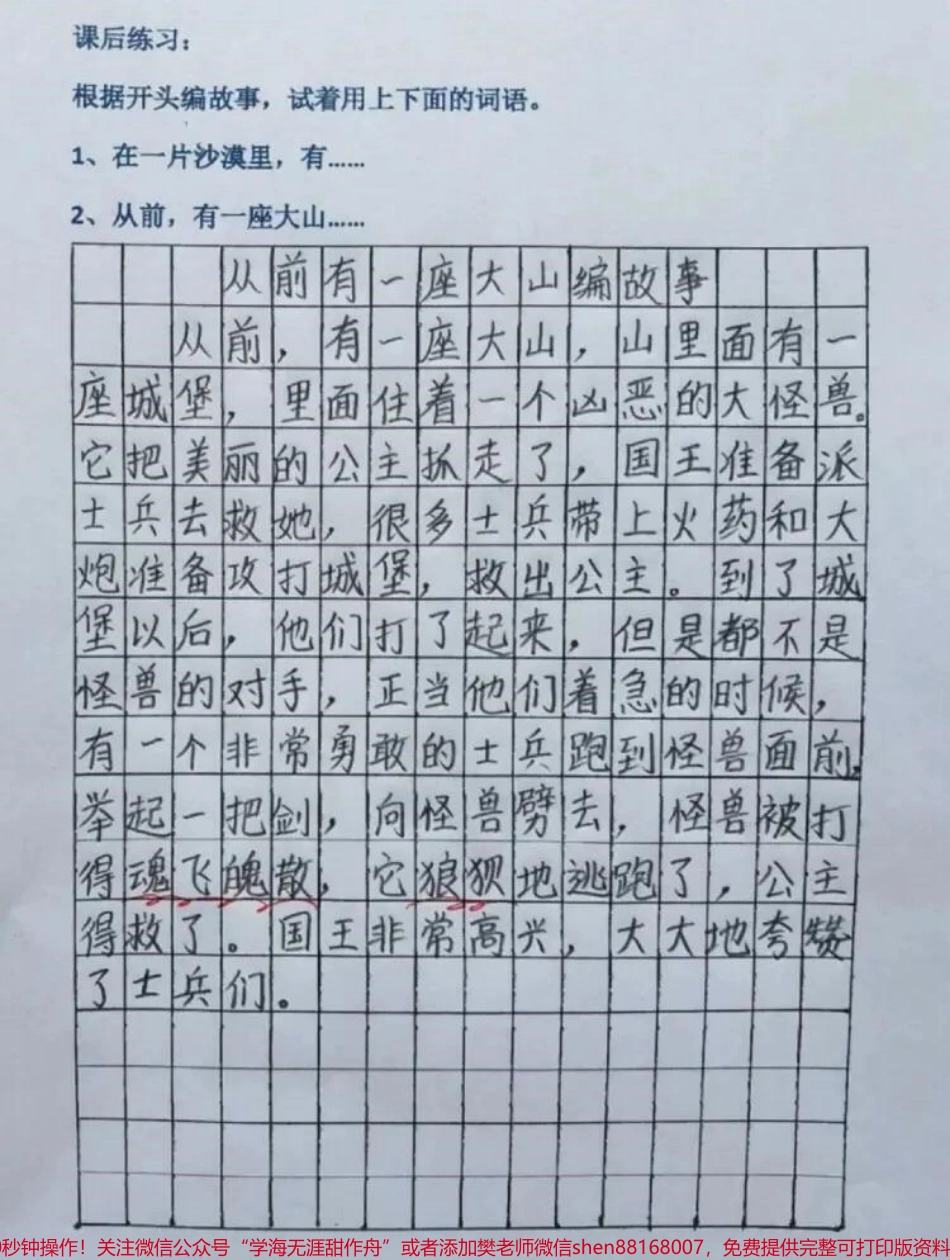 课后练习：
根据开头编故事，试着用上下面的词语。
1、在一片沙漠里，有……
2、从前，有一座大山……
从前有一座大山编故事
从前，有一座大山，山里面有一
座城堡，里面住着一个凶恶的大怪兽。
它把美丽的公主抓走了，国王准备派
士兵去救她，很多士兵带上火药和大
炮准备攻打城堡，救出公主。到了城
堡以后，他们打了起来，但是都不是
怪兽的对手，正当他们着急的时候，
有一个非常勇敢的士兵跑到怪兽面前，
举起一把剑，向怪兽劈去，怪兽被打
得魂飞魄散，它狼狈地逃跑了，公主
得救了。国王非常高兴，大大地夸赞
了士兵们。
秒钟操作！关注微信公众号“学海无涯甜作舟”或者添加樊老师微信shen88168007，免费提供完整可打印版资料